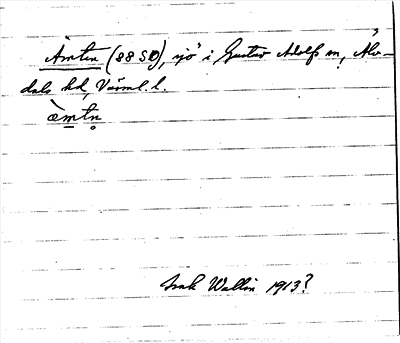 Ämten (88 SO), sjö i Gustav Adolfs sn, Älv-
dals hd, Värml. l.
æ̀mtn̥
Isak Wallin 1913?